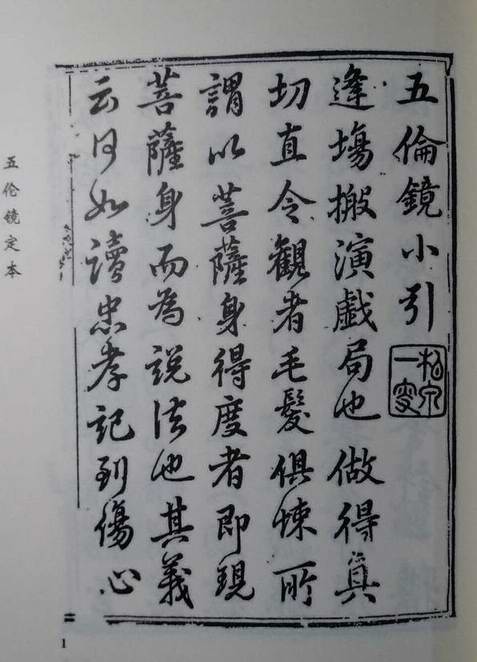 五倫鏡小引
逢塲搬演戲局也做得真
切直令觀者毛髮俱悚所
謂以菩薩身得度者即現
菩薩身而為説法也其義
云何如讀忠孝記到傷心
五伦镜定本
1